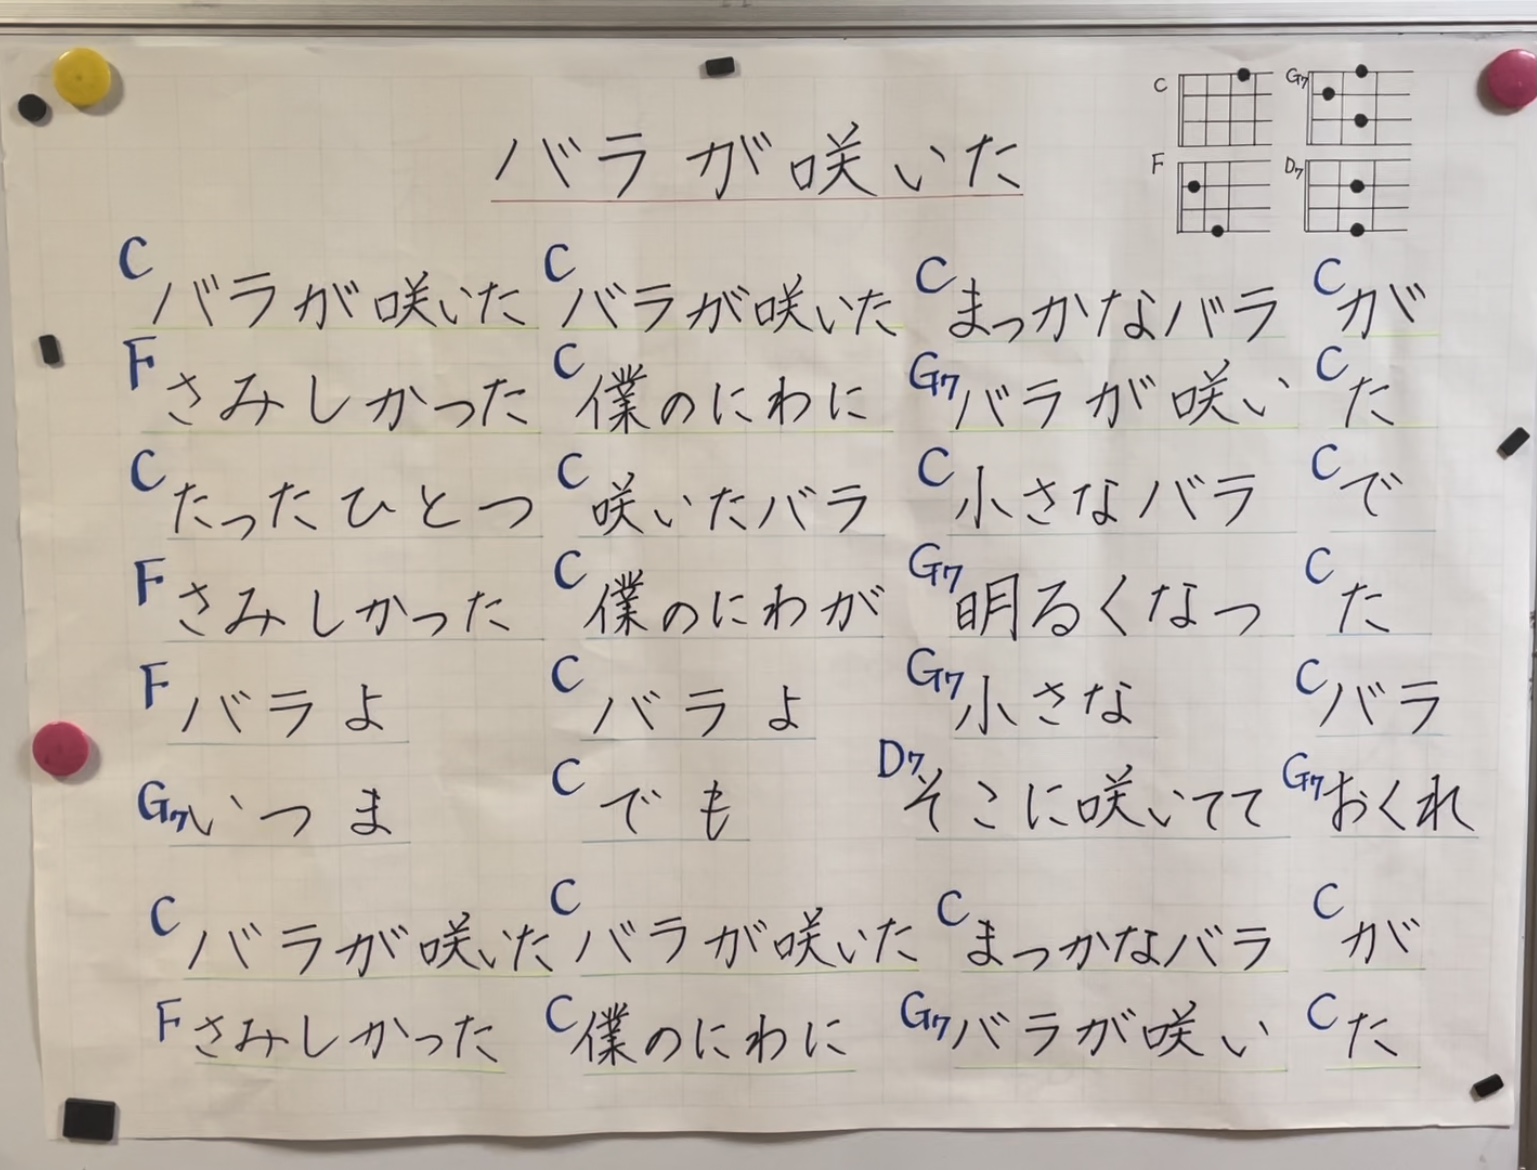 バラが咲いた
C G7
F D7
C バラが咲いた C バラが咲いた C まっかなバラ C が
F さみしかった C 僕のにわに G7 バラが咲い C た
C たったひとつ C 咲いたバラ C 小さなバラ C で
F さみしかった C 僕のにわが G7 明るくなっ C た
F バラよ C バラよ G7 小さな C バラ
G7 いつま C でも D7 そこに咲いてて G7 おくれ
C バラが咲いた C バラが咲いた C まっかなバラ C が
F さみしかった C 僕のにわに G7 バラが咲い C た